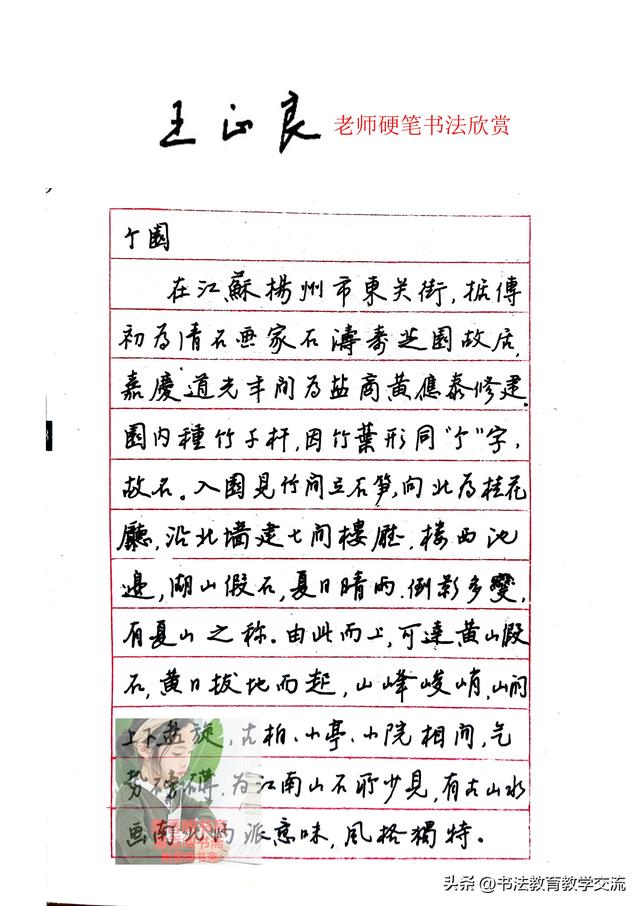 王正良 老师硬笔书法欣赏
个園
在江蘇楊州市東关街，据傳
初為清石画家石濤壽芝園故居，
嘉慶道光年間為盐商黄應泰修建．
園内種竹千杆，因竹葉形同“个”字，
故名。入園見竹間立石笋，向北為桂花
廳，沿北墙建七間樓廰．楼西池
邊，湖山假石，夏日晴雨．倒影多變，
有夏山之称。由此而上，可達黄山假
石，黄日拔地而起，山峰峻峭，山间
上下盐旋，古柏、小亭、小院相间，气
势磅礴，为江南山石所少見，有古山水
画南北 派意味，風格獨特。
头条 @书法教育教学交流